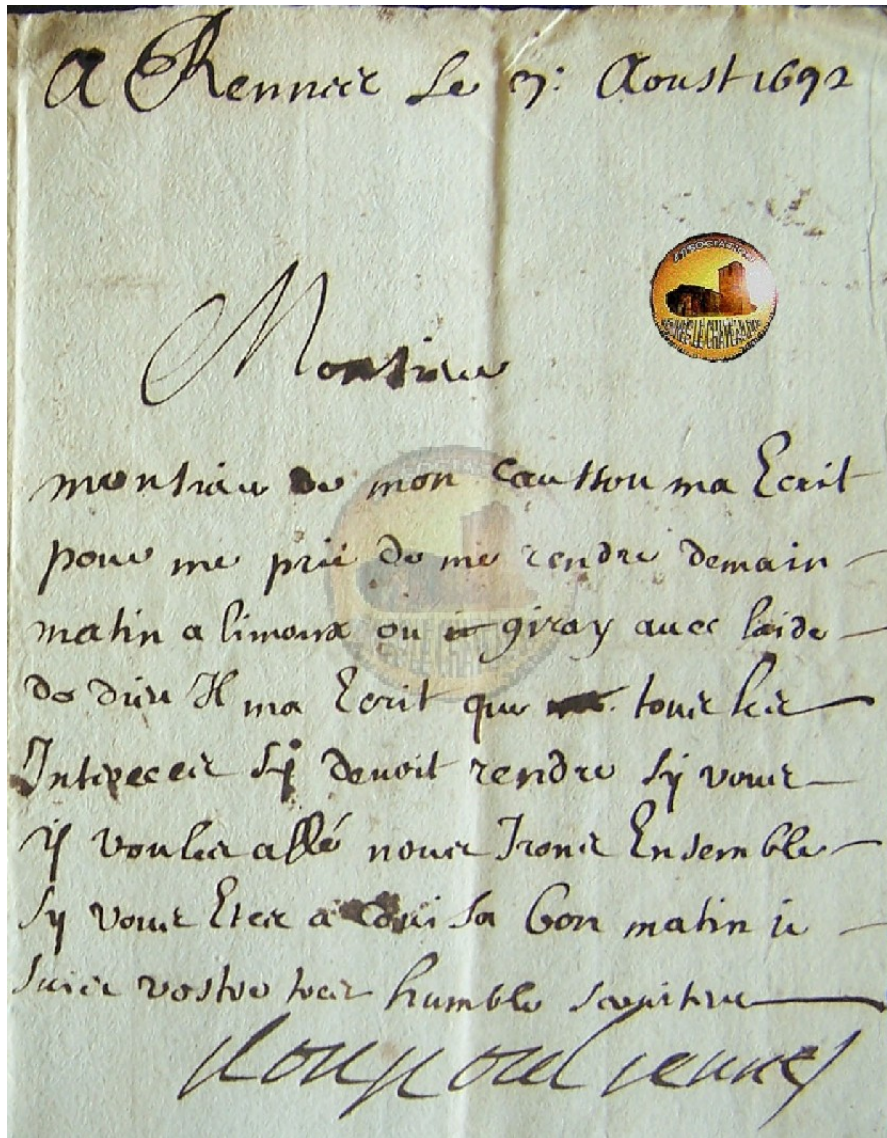 A Rennes Le 3: Aoust 1692
Monsieur
monsieur de mon Caussou ma Ecrit
pour me prie de me rendre demain
matin a limoux ou giray avec laide
de dieu Il ma Ecrit que tous les
Sy devoit rendre sy vous
y voules allé nous Irons Ensemble
sy vous Etes a sa bon matin je
suis vostre tres humble serviteur
ASSOCIATION